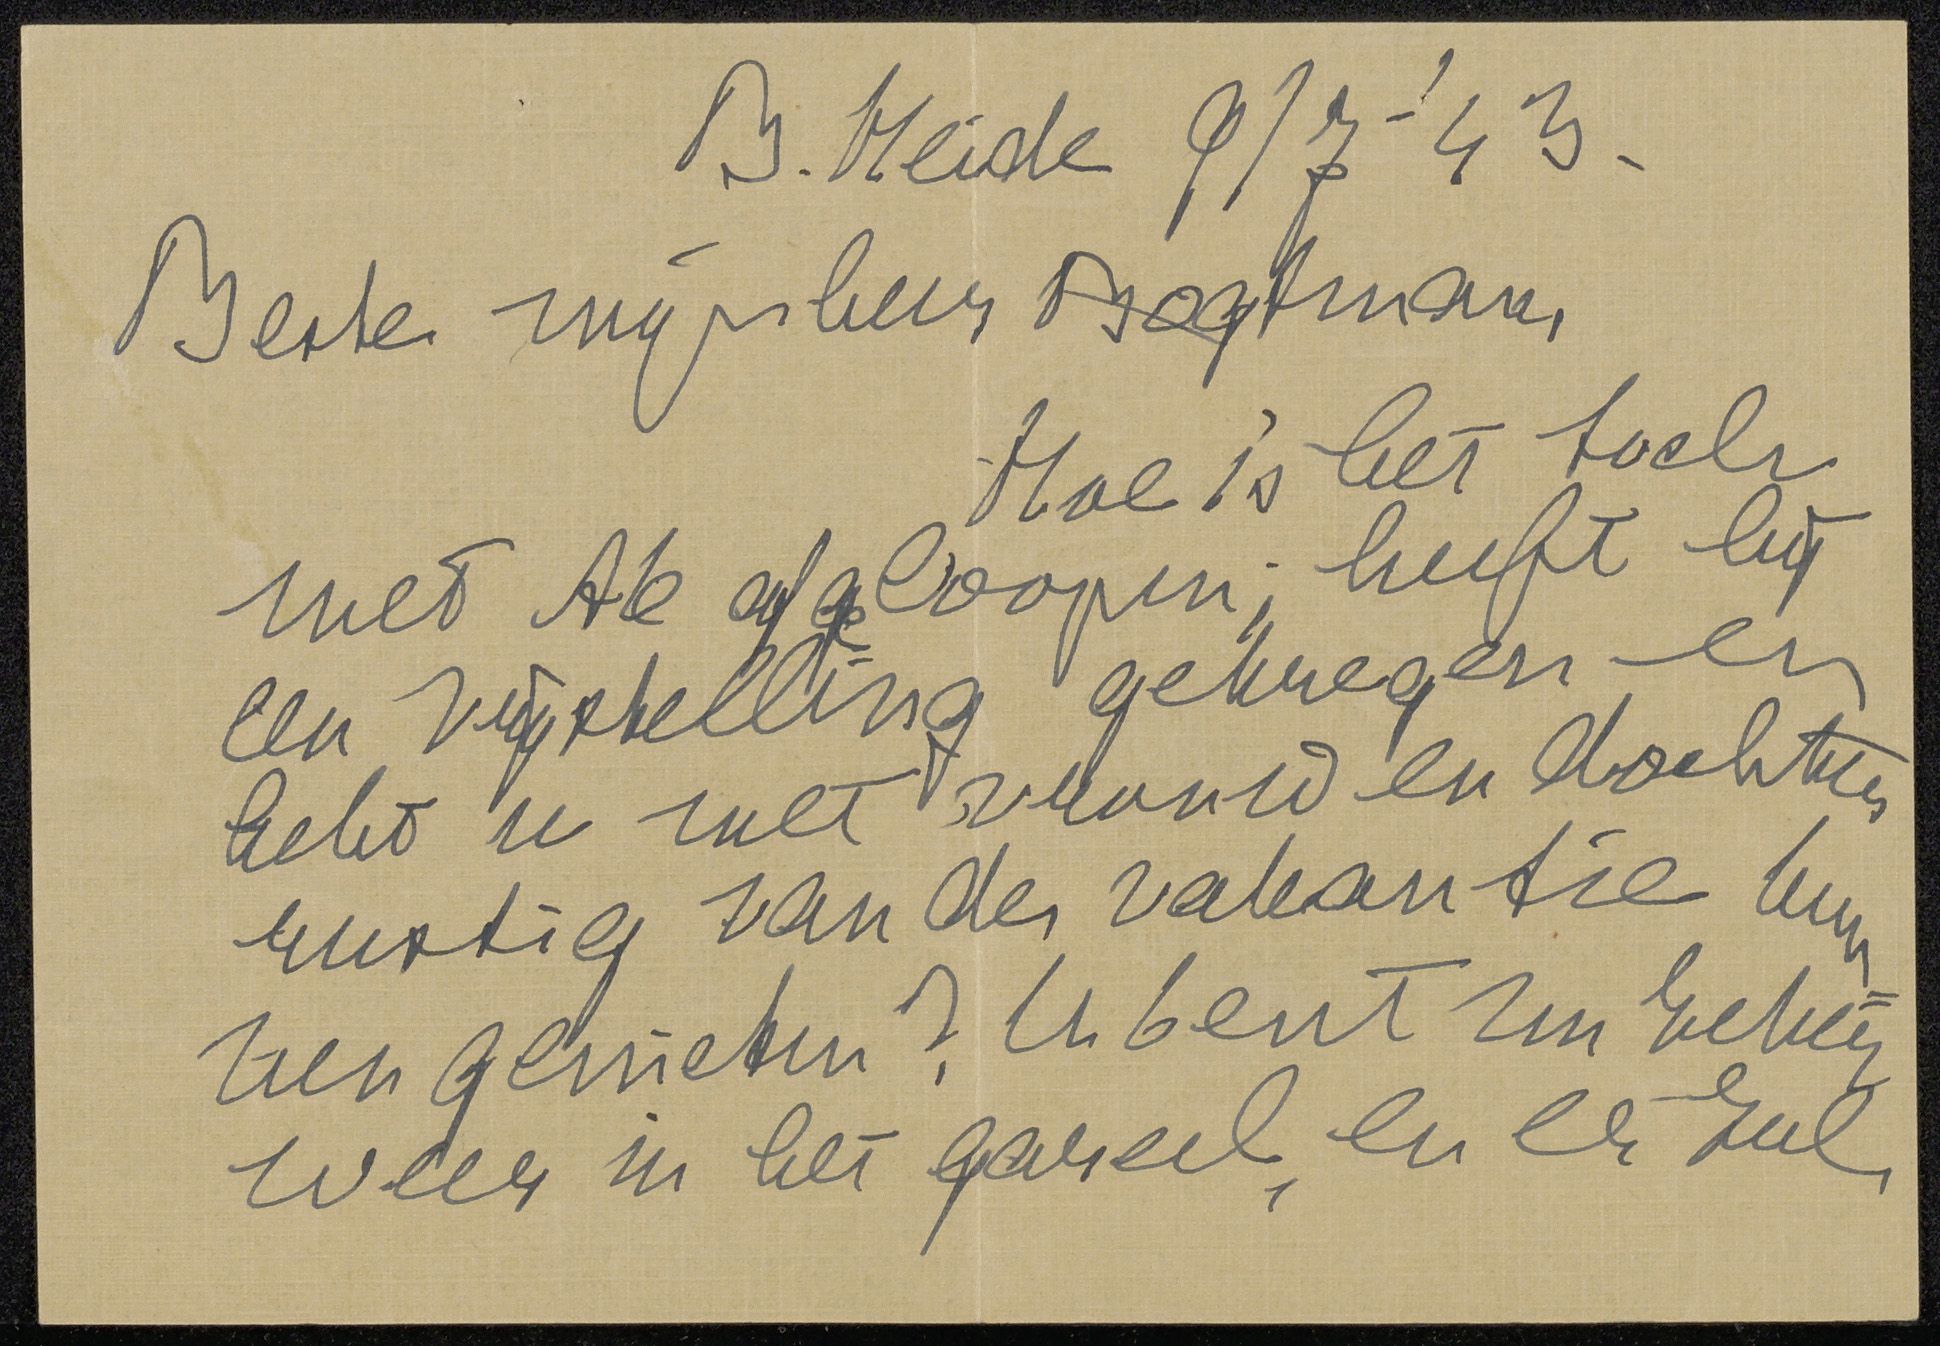 B. Heide 9/7-'43.
Beste mijnheer Bogtman,
Hoe is het toch
met Ab afgeloopen; heeft hij
een vrijstelling gekregen en
hebt u met vrouw en dochter
rustig van de vakantie kun
nen genieten? U bent nu zeker
weer in het gareel, en er zul